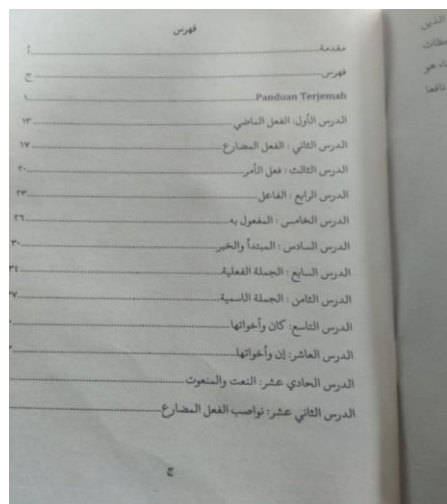 فهرس
مقدمة أ
فهرس ج
Panduan Terjemah ١
الدرس الأول: الفعل الماضي ١٣
الدرس الثاني : الفعل المضارع ١٧
الدرس الثالث : فعل الأمر ٢٠
الدرس الرابع : الفاعل ٢٣
الدرس الخامس : المفعول به ٢٦
الدرس السادس : المبتدأ والخبر ٣٠
الدرس السابع : الجملة الفعلية ٣٤
الدرس الثامن : الجملة الاسمية ٣٧
الدرس التاسع: كان وأخواتها
الدرس العاشر: إن وأخواتها
الدرس الحادي عشر: النعت والمنعوت
الدرس الثاني عشر: نواصب الفعل المضارع
ج
الذين
هو
نافعا